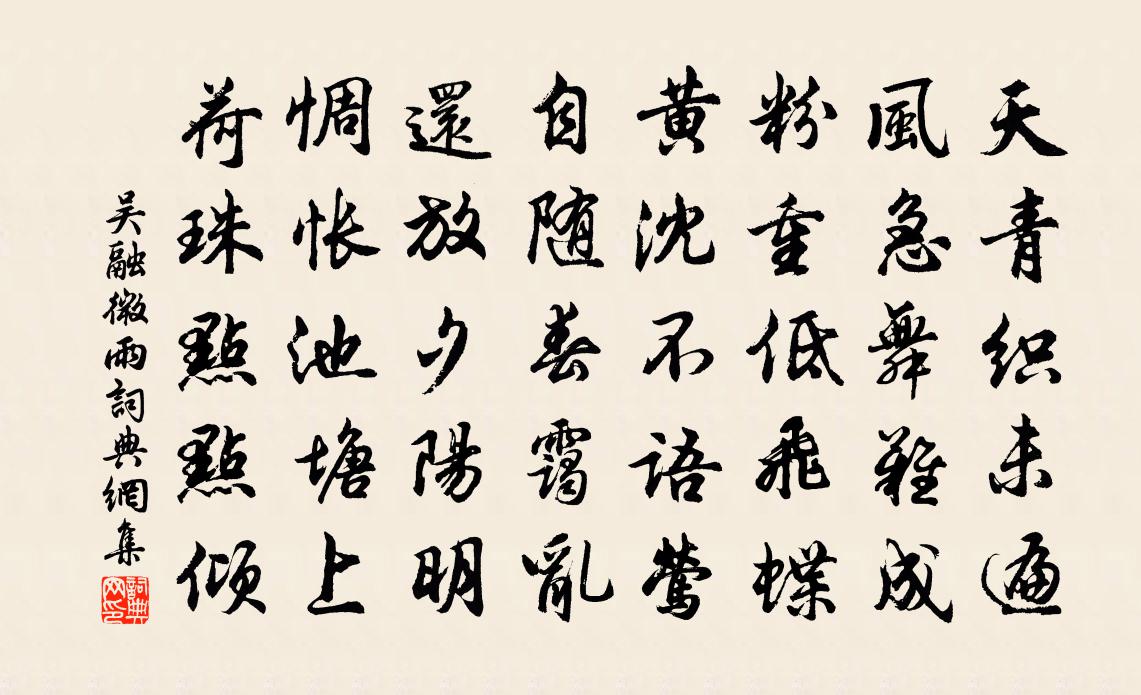 天青织未遍
風急舞難成
粉重低飛蝶
黄沈不语鶯
自随春靄亂
還放夕陽明
惆怅池塘上
荷珠點點倾
吴融微雨詞典網集
詞典網印